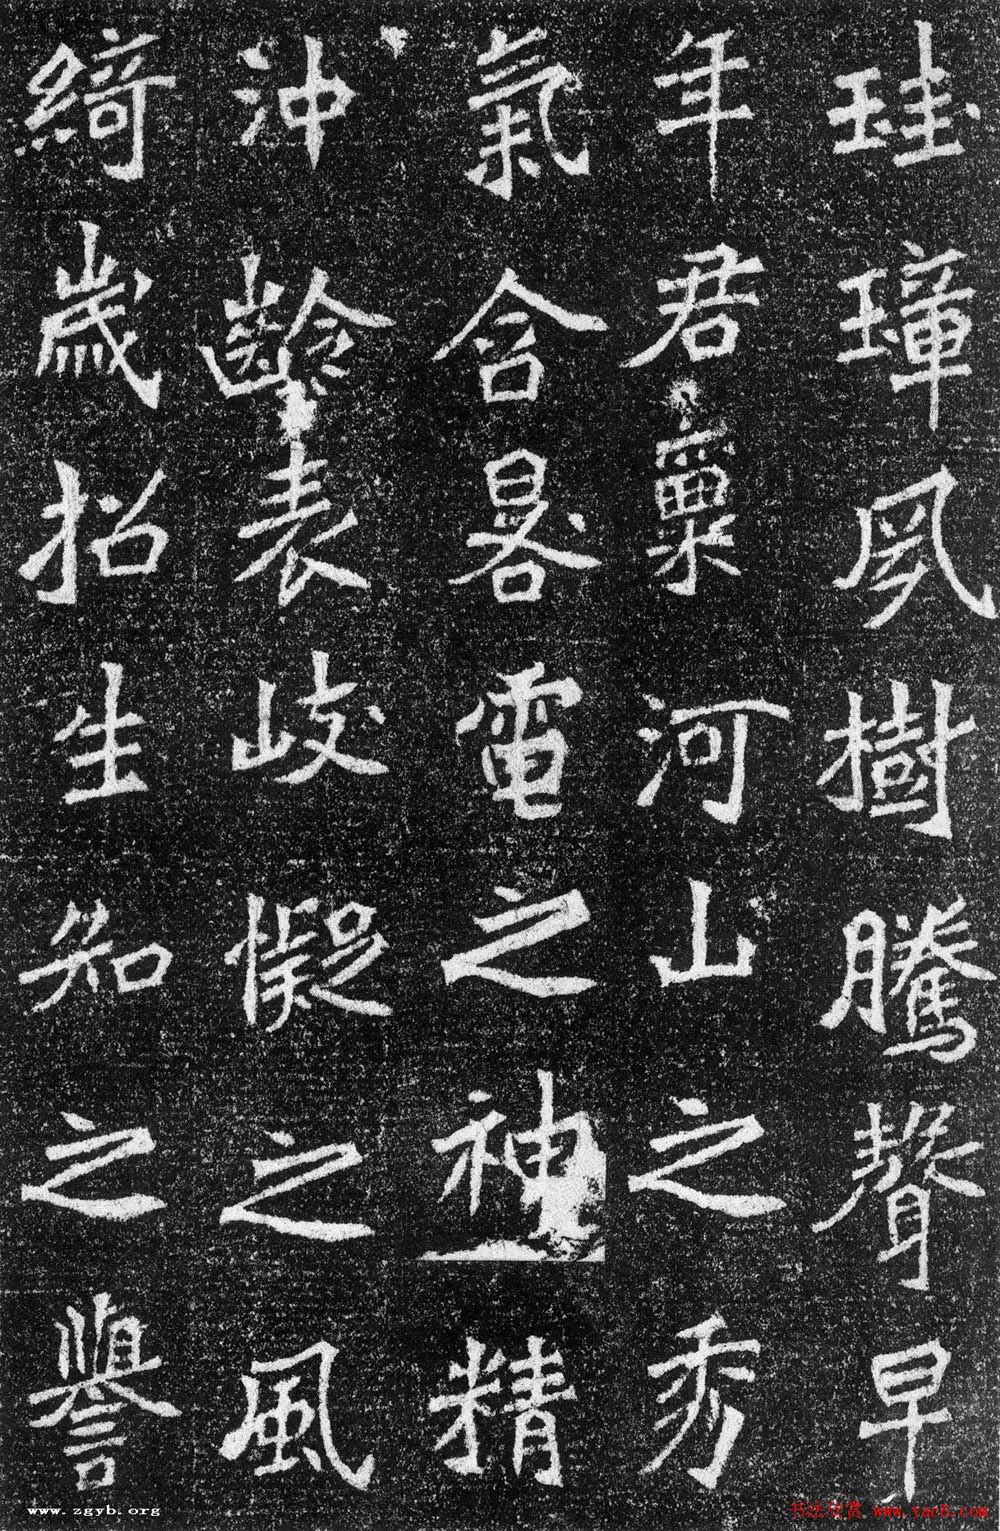 珪璋夙樹騰聲早
年君稟河山之秀
氣含晷電之神精
沖齡表岐㠜之風
綺歲招生知之譽
www.zgyb.org
书法欣赏 www.yac8.com